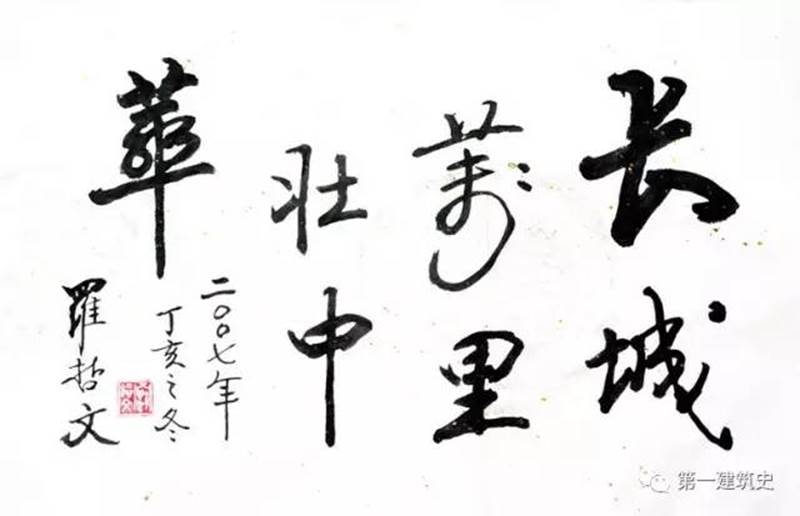 长城
萬里
壮中
華
二〇〇七年
丁亥之冬
羅哲文
第一建筑史